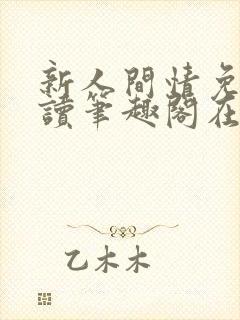 新人間情免
讀筆趣閣在
乙木木